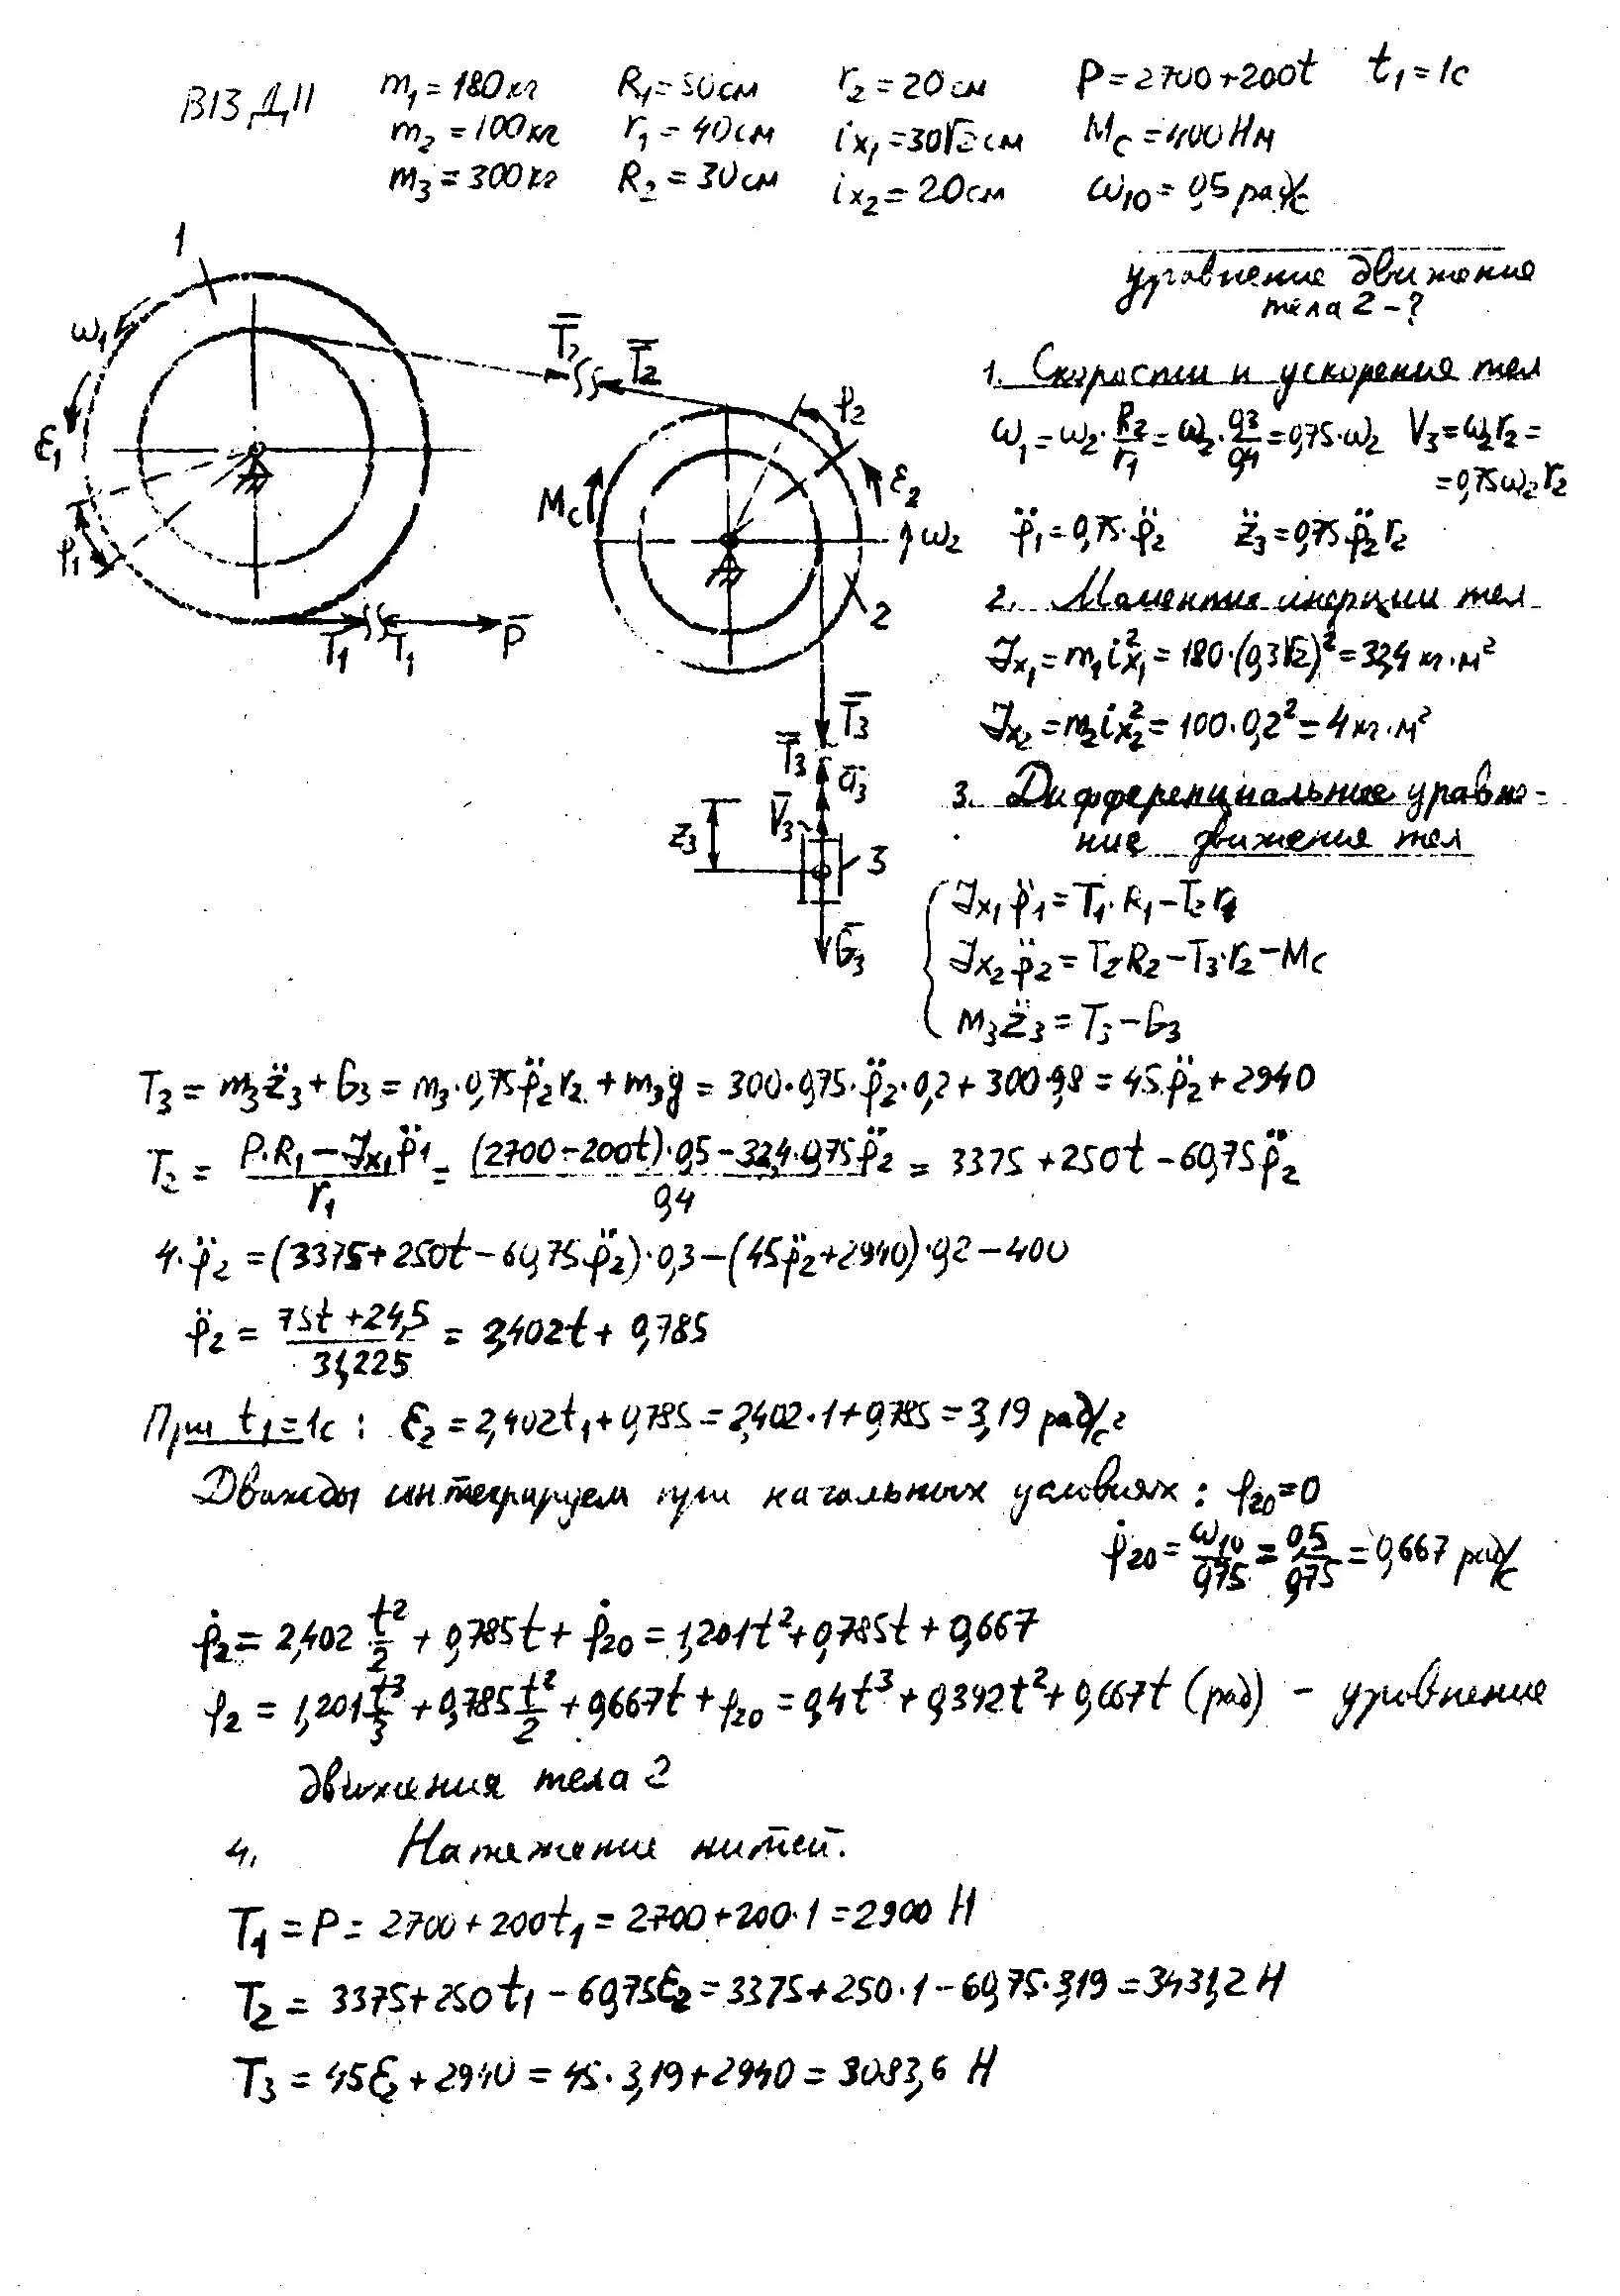 В13 Д11 m₁=180кг R₁=50см r₂=20см P=2700+200t t₁=1с
m₂=100кг r₁=40см iₓ₁=30√2см Mc=400Нм
m₃=300кг R₂=30см iₓ₂=20см ω₁₀=0,5рад/с
уравнение движение
тела 2-?
1
ω₁
ε₁
φ₁
T̄₂
T̄₂
φ₂
Mc
ε₂
ω₂
2
T̄₁
T̄₁
P̄
T̄₃
T̄₃
ā₃
V̄₃
z₃
3
Ḡ₃
1. Скорости и ускорения тел
ω₁=ω₂·R₂/r₁=ω₂·0,3/0,4=0,75·ω₂ V₃=ω₂r₂=
=0,75ω₂r₂
φ̈₁=0,75·φ̈₂ z̈₃=0,75φ̈₂r₂
2. Моменты инерции тел
Jₓ₁=m₁iₓ₁²=180·(0,3√2)²=32,4 кг·м²
Jₓ₂=m₂iₓ₂²=100·0,2²=4кг·м²
3. Дифференциальные уравне-
ние движения тел
Jₓ₁φ̈₁=T₁·R₁-T₂r₁
Jₓ₂φ̈₂=T₂R₂-T₃·r₂-Mc
m₃z̈₃=T₃-G₃
T₃=m₃z̈₃+G₃=m₃·0,75φ̈₂r₂+m₃g=300·0,75·φ̈₂·0,2+300·9,8=45φ̈₂+2940
T₂=(P·R₁-Jₓ₁φ̈₁)/r₁=((2700-200t)·0,5-32,4·0,75φ̈₂)/0,4=3375+250t-60,75φ̈₂
4·φ̈₂=(3375+250t-60,75φ̈₂)·0,3-(45φ̈₂+2940)·0,2-400
φ̈₂=(75t+24,5)/31,225=2,402t+0,785
При t₁=1с: ε₂=2,402t₁+0,785=2,402·1+0,785=3,19 рад/с²
Дважды интегрируем при начальных условиях: φ₂₀=0
φ̇₂₀=ω₁₀/0,75=0,5/0,75=0,667 рад/с
φ̇₂=2,402 t²/2+0,785t+φ̇₂₀=1,201t²+0,785t+0,667
φ₂=1,201t³/3+0,785t²/2+0,667t+φ₂₀=0,4t³+0,392t²+0,667t (рад) - уравнение
движения тела 2
4. Натяжение нитей.
T₁=P=2700+200t₁=2700+200·1=2900 Н
T₂=3375+250t₁-60,75ε₂=3375+250·1-60,75·3,19=3431,2 Н
T₃=45ε₂+2940=45·3,19+2940=3083,6 Н